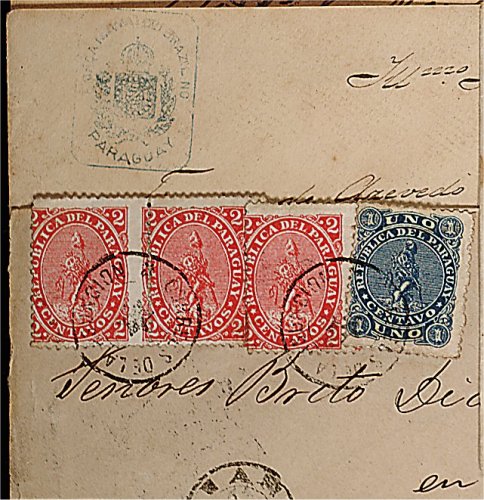 PARAGUAY
Illmo
de Azevedo
2 REPUBLICA DEL PARAGUAY 2
2 CENTAVOS 2
2 REPUBLICA DEL PARAGUAY 2
2 CENTAVOS 2
2 REPUBLICA DEL PARAGUAY 2
2 CENTAVOS 2
1 UNO 1
REPUBLICA DEL PARAGUAY
CENTAVO
1 UNO 1
Senores Brito Dia
en